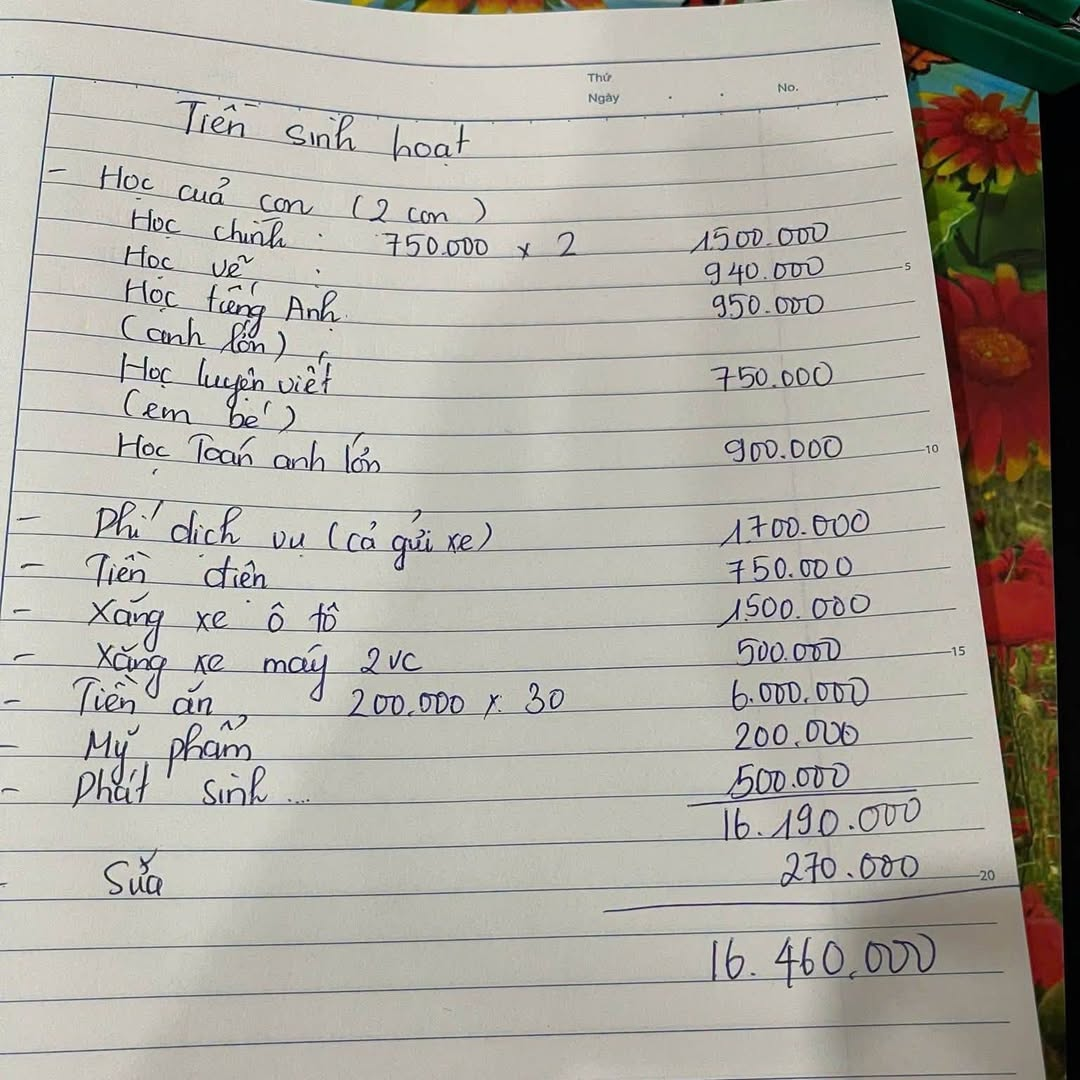 Thứ
Ngày . . No.
Tiền sinh hoạt
- Học cuả con (2 con)
Học chính : 750.000 x 2 1500.000
Học vẽ : 940.000
5
Học tiếng Anh. 950.000
(anh lớn)
Học luyện viết 750.000
(em bé)
Học Toán anh lớn 900.000
10
- Phí dịch vụ (cả gửi xe) 1700.000
- Tiền điện 750.000
- Xăng xe ô tô 1500.000
- Xăng xe máy 2vc 500.000
15
- Tiền ăn 200.000 x 30 6.000.000
- Mỹ phẩm 200.000
- Phát sinh ... 500.000
16.190.000
- Sữa 270.000
20
16.460.000